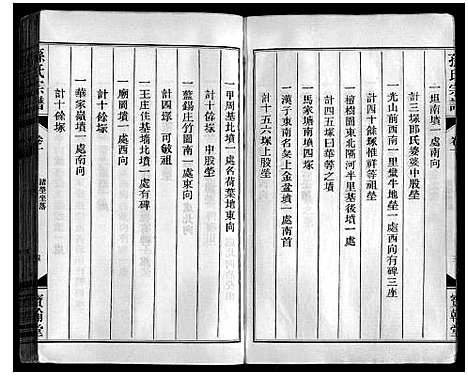 孫氏宗譜
卷十
一坦南墳一處南向
計三塚邵氏婆葬中股塋
一光山前西南一里蠻牛地塋一處西向有碑三座
計四十餘塚惟祥等祖塋
一檀樹園東北隔河半里基後墳一處
計四五塚曰華等之墳
一馬家塘南墳四塚
一漢子東南名癸上金盆墳一處南首
計十五六塚上股塋
一甲周基北墳一處名荷葉地東向
計十餘塚 中股塋
一藍錫莊竹園南一處東向
計四塚 可敏祖
一王庄住基塲北墳一處有碑
一廟園墳一處西向
計十餘塚
一華家嶺墳一處南向
計十餘塚
孫氏宗譜
卷十
諸塋坐落
四
寶翰堂